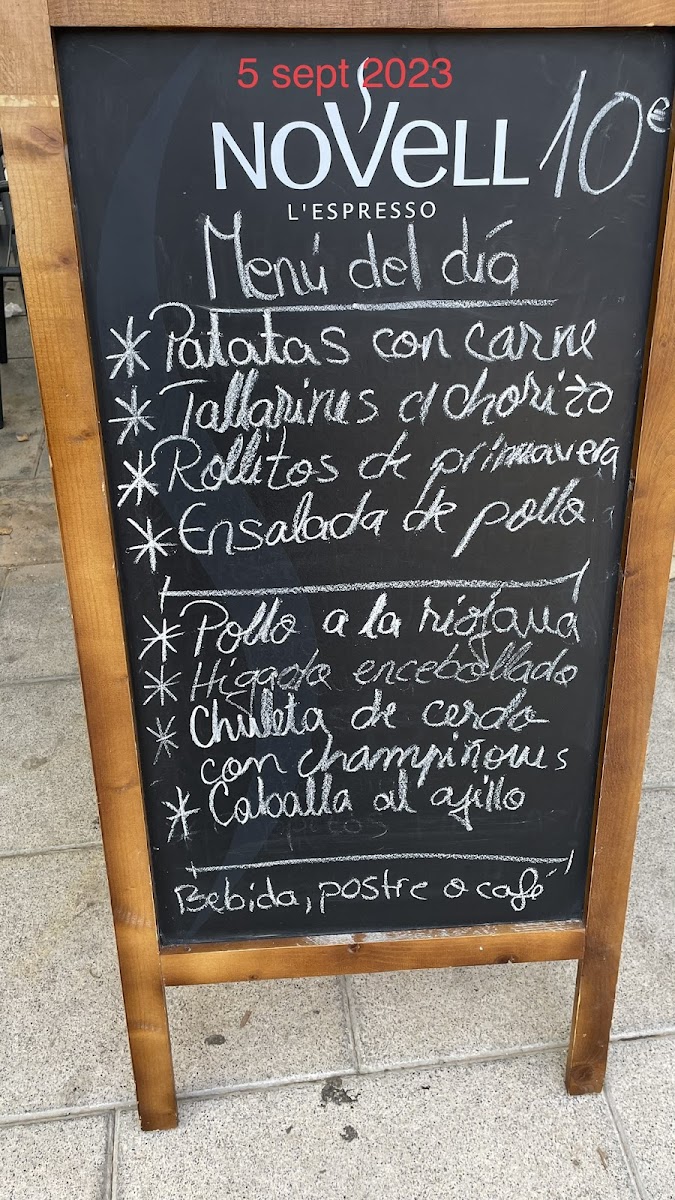 5 sept 2023
NOVELL 10€
L'ESPRESSO
Menú del día
* Patatas con carne
* Tallarines al chorizo
* Rollitos de primavera
* Ensalada de pollo
* Pollo a la riojana
* Higado encebollado
* Chuleta de cerdo
con champiñones
* Caballa al ajillo
Bebida, postre o café